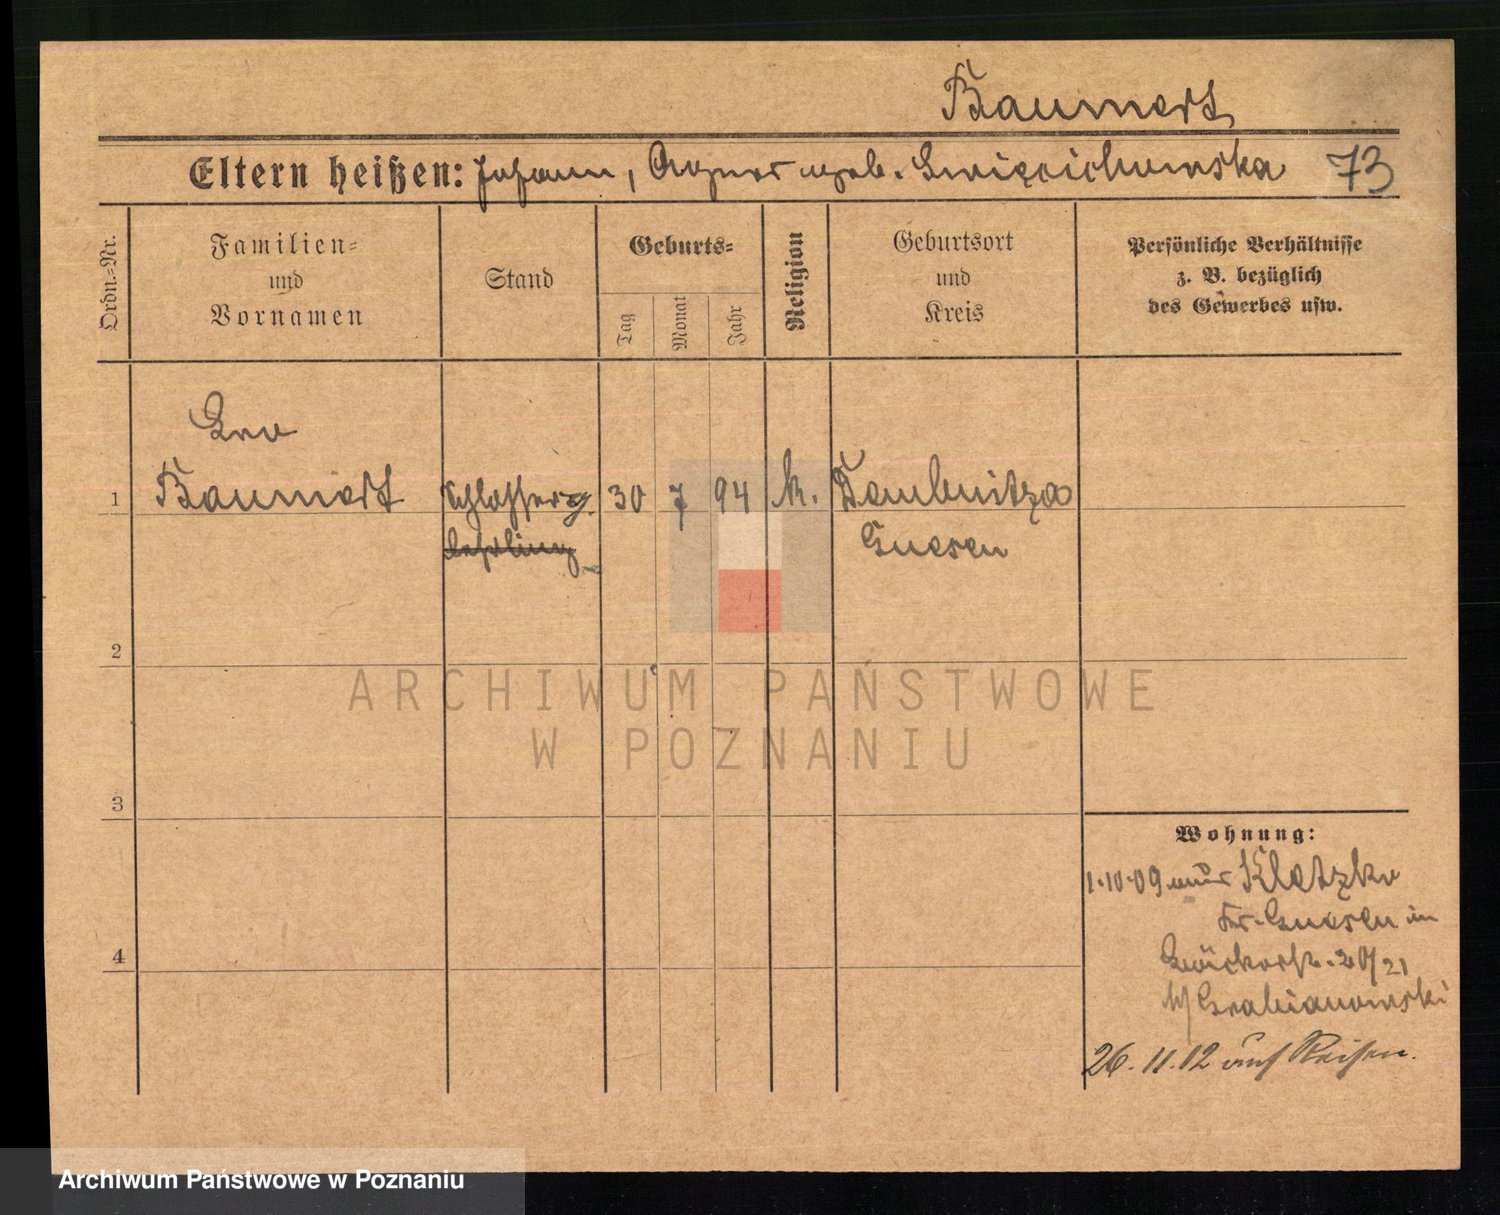 Baumert
Eltern heißen: Johann, Agnes geb. Święcichowska 73
Ordn.-Nr.
Familien-
und
Vornamen
Stand
Geburts-
Tag
Monat
Jahr
Religion
Geburtsort
und
Kreis
Persönliche Verhältnisse
z. B. bezüglich
des Gewerbes usw.
Leo
1 Baumert Schlosserg. 30 7 94 k. Dembnitza
Lehrling
Gnesen
2
3
4
Wohnung:
1.10.09 aus Kletzko
Kr. Gnesen in
20/21
b/ Grabianowski
26.11.12 auf Reisen.
ARCHIWUM PAŃSTWOWE
W POZNANIU
Archiwum Państwowe w Poznaniu